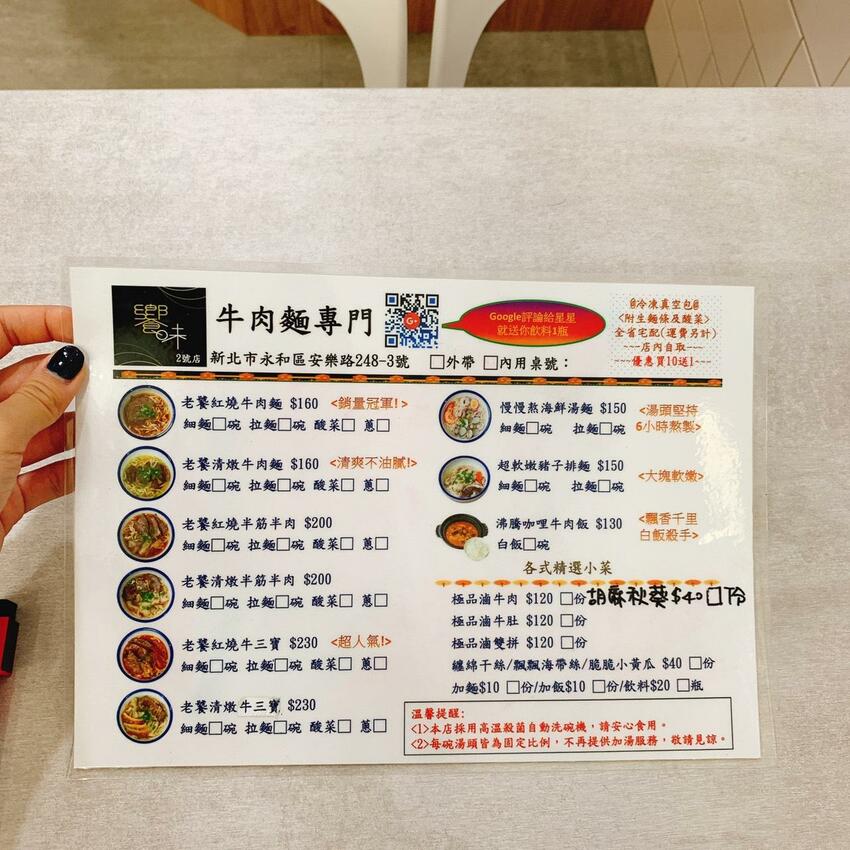 饗味
2號店
牛肉麵專門
Google評論給星星
就送你飲料1瓶
@冷凍真空包@
<附生麵條及酸菜>
全省宅配(運費另計)
---店內自取---
---優惠買10送1---
新北市永和區安樂路248-3號 □外帶 □內用桌號：
老饕紅燒牛肉麵 $160 <銷量冠軍!>
細麵□碗 拉麵□碗 酸菜□ 蔥□
老饕清燉牛肉麵 $160 <清爽不油膩!>
細麵□碗 拉麵□碗 酸菜□ 蔥□
老饕紅燒半筋半肉 $200
細麵□碗 拉麵□碗 酸菜□ 蔥□
老饕清燉半筋半肉 $200
細麵□碗 拉麵□碗 酸菜□ 蔥□
老饕紅燒牛三寶 $230 <超人氣!>
細麵□碗 拉麵□碗 酸菜□ 蔥□
老饕清燉牛三寶 $230
細麵□碗 拉麵□碗 酸菜□ 蔥□
慢慢熬海鮮湯麵 $150 <湯頭堅持
細麵□碗 拉麵□碗 6小時熬製>
超軟嫩豬子排麵 $150 <大塊軟嫩>
細麵□碗 拉麵□碗
沸騰咖哩牛肉飯 $130 <飄香千里
白飯□碗 白飯殺手>
各式精選小菜
極品滷牛肉 $120 □份 胡麻秋葵$40□份
極品滷牛肚 $120 □份
極品滷雙拼 $120 □份
纏綿干絲/飄飄海帶絲/脆脆小黃瓜 $40 □份
加麵$10 □份/加飯$10 □份/飲料$20 □瓶
溫馨提醒:
<1>本店採用高溫殺菌自動洗碗機，請安心食用。
<2>每碗湯頭皆為固定比例，不再提供加湯服務，敬請見諒。